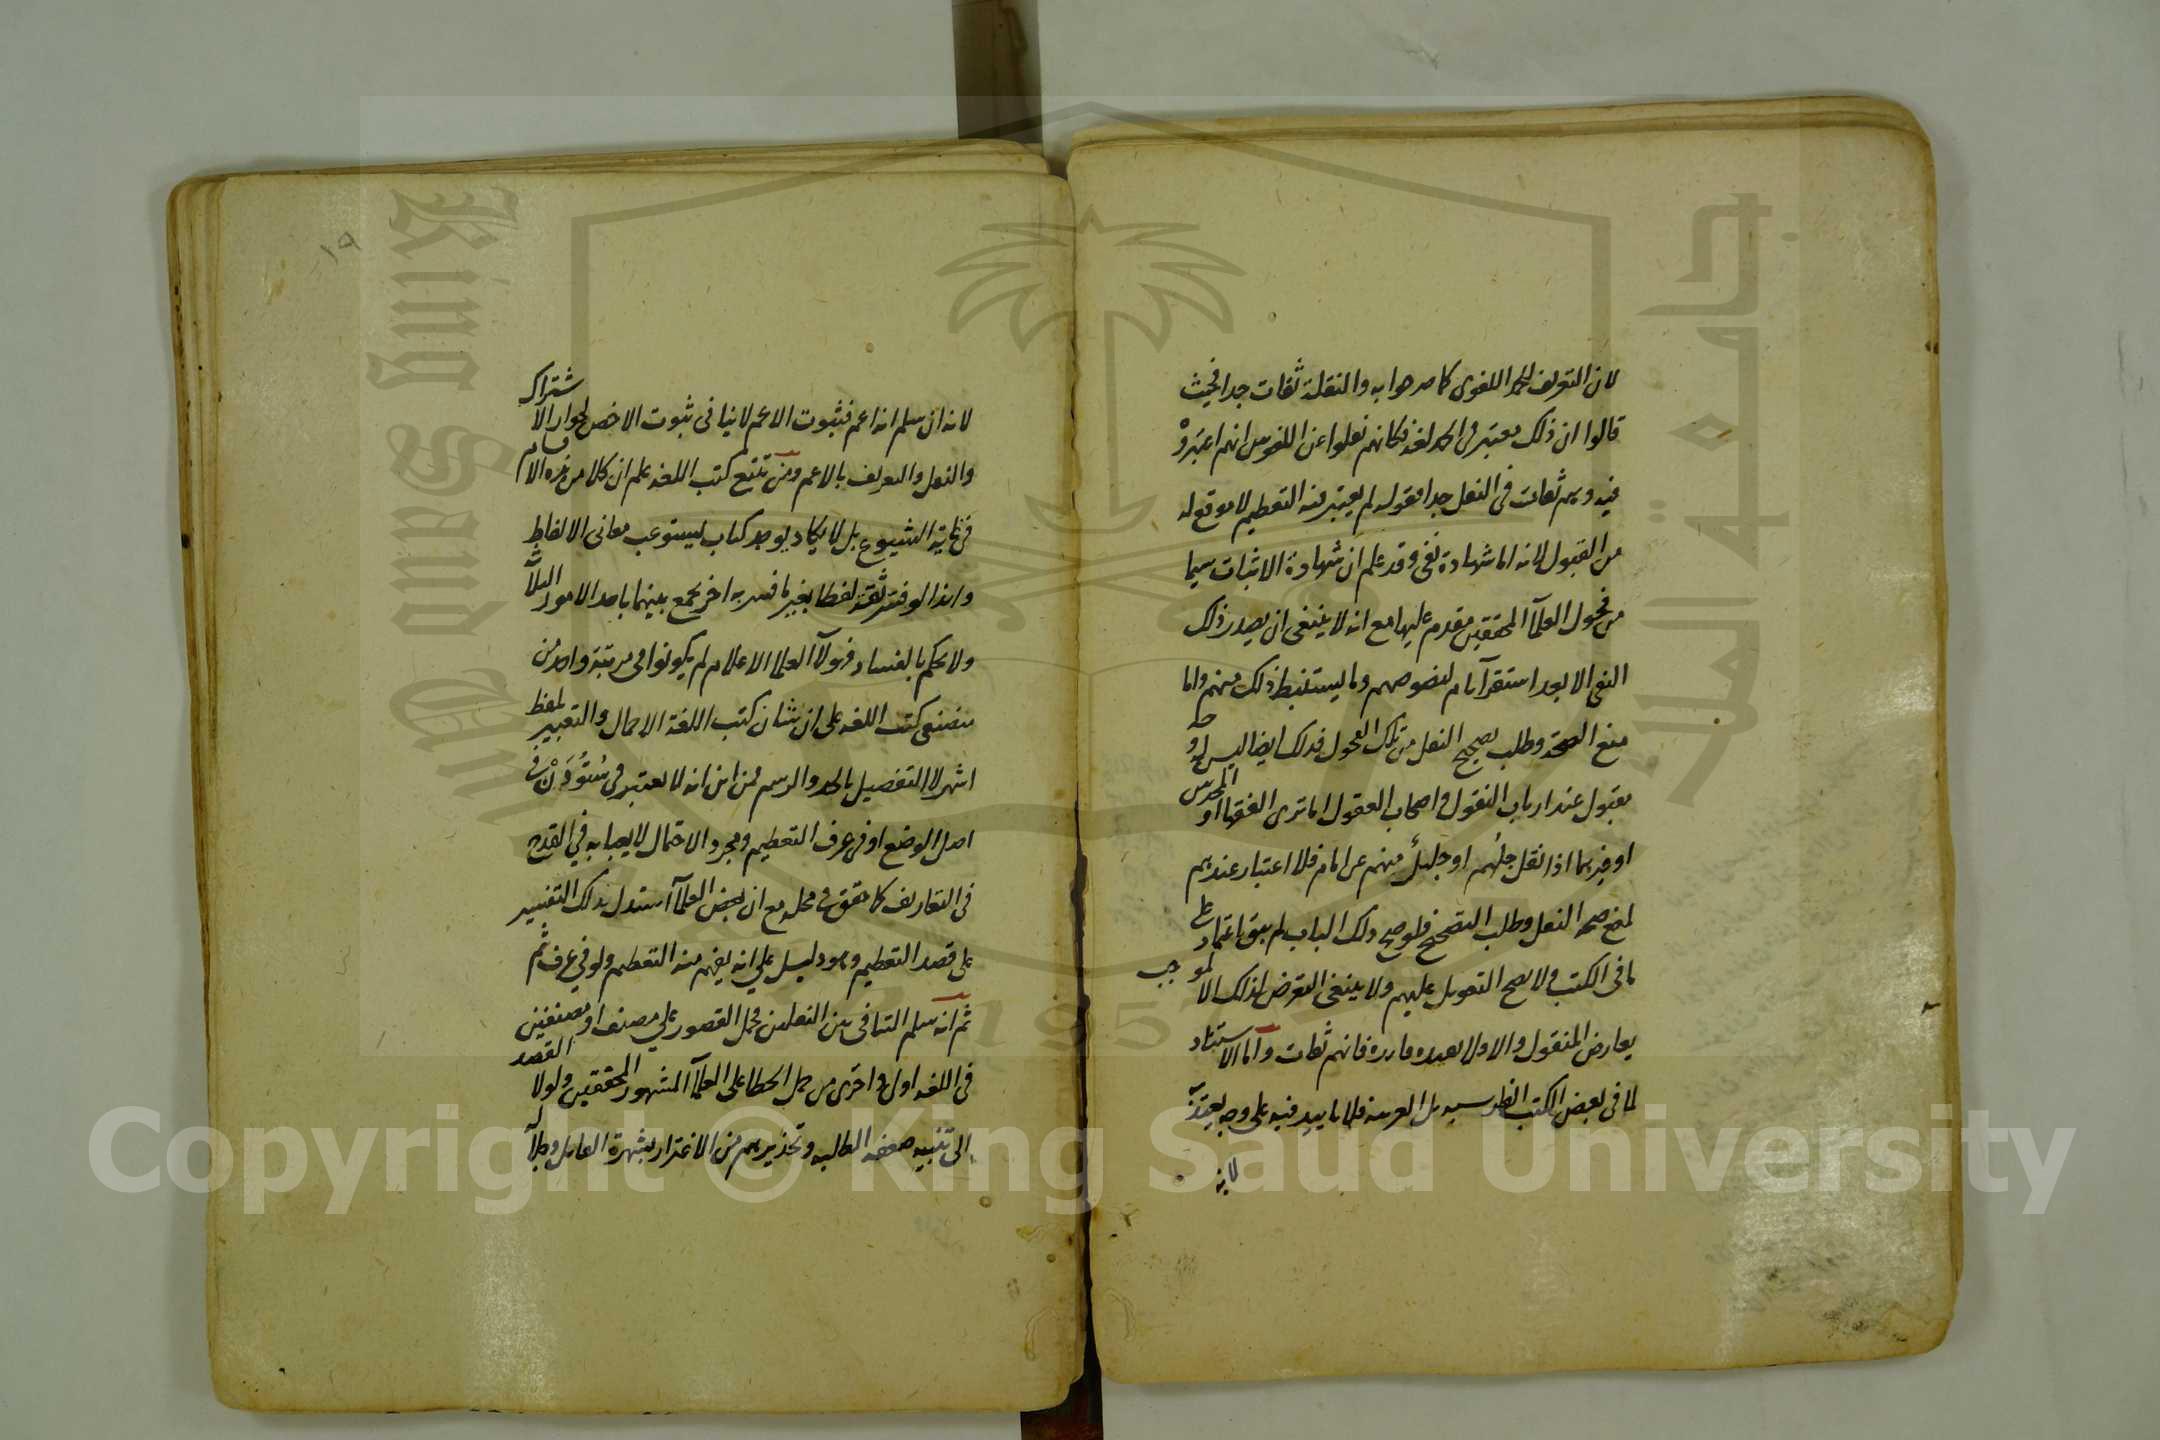 لان التعريف للحمد اللغوى كما صرحوا به والنقلة ثقات جدا فحيث
قالوا ان ذلك معتبر فى الحمد لغة فكانهم نقلوا عن اللغويين انهم اعتبروه
فيه وهم ثقات فى النقل جدا فقوله لم يعتبر فيه التعظيم لا موقع له
من القبول لانه اما شهادة نفى وقد علم ان شهادة الاثبات سيما
من فحول العلمآ المحققين مقدم عليها مع انه لا ينبغى ان يصدر ذلك
النفى الا بعد استقرآ تام لنصوصهم وما يستنبط ذلك منهم واما
منع الصحة وطلب تصحيح النقل من تلك الفحول فذلك ايضا ليس له وجه
بقبول عند ارباب النقول واصحاب العقول اما ترى الفقها او المحدثين
او غيرهما اذا نقل جلهم او جليل منهم عن امام فلا اعتبار عندهم
لمنع صحة النقل وطلب التصحيح فلو صح ذلك الباب لم يبق اعتماد على
ما فى الكتب ولا يصح التعويل عليهم ولا ينبغى التعرض لذلك الا لموجب
يعارض المنقول والا ولا بعده فانهم ثقات واما الاستناد
لما فى بعض الكتب بل العربية فلا تاييد فيه على وجه يعتد به
لانه
١٩
لانه ان سلم انه اعم فثبوت الاعم لا ينافى ثبوت الاخص لجواز الاشتراك
والنقل والتعريف بالاعم ومن تتبع كتب اللغة علم ان كلا من هذه الاقسام
فى غاية الشيوع بل لا يكاد يوجد كتاب يستوعب معانى الالفاظ
ولهذا لو فسر ثقة لفظا بغير ما فسر به اخر يجمع بينهما باحد الامور الثلاثة
ولا يحكم بالفساد فهولآ العلما الاعلام لم يكونوا فى مرتبة واحد من
مصنفى كتب اللغة على ان شان كتب اللغة الاجمال والتعبير بلفظ
اشهر لا التفصيل بالحد والرسم فمن اين انه لا يعتبر فى ستودن فى
اصل الوضع او فى عرف التعظيم ومجرد الاحتمال لا يعبا به في القدح
فى التعاريف كما حقق فى محله مع ان بعض العلمآ استدل بذلك التفسير
على قصد التعظيم وهو دليل علي انه يفهم منه التعظيم ولو في عرف ثم
ثم انه سلم التنافى بين النقلين فحمل القصور علي مصنف او مصنفين
فى اللغة اولى واحرى من حمل الخطا على العلمآ المشهور المحققين ولولا القصد
الى تنبيه ضعفة الطلبة وتحذيرهم من الاغترار بشهرة القايل وجلالة